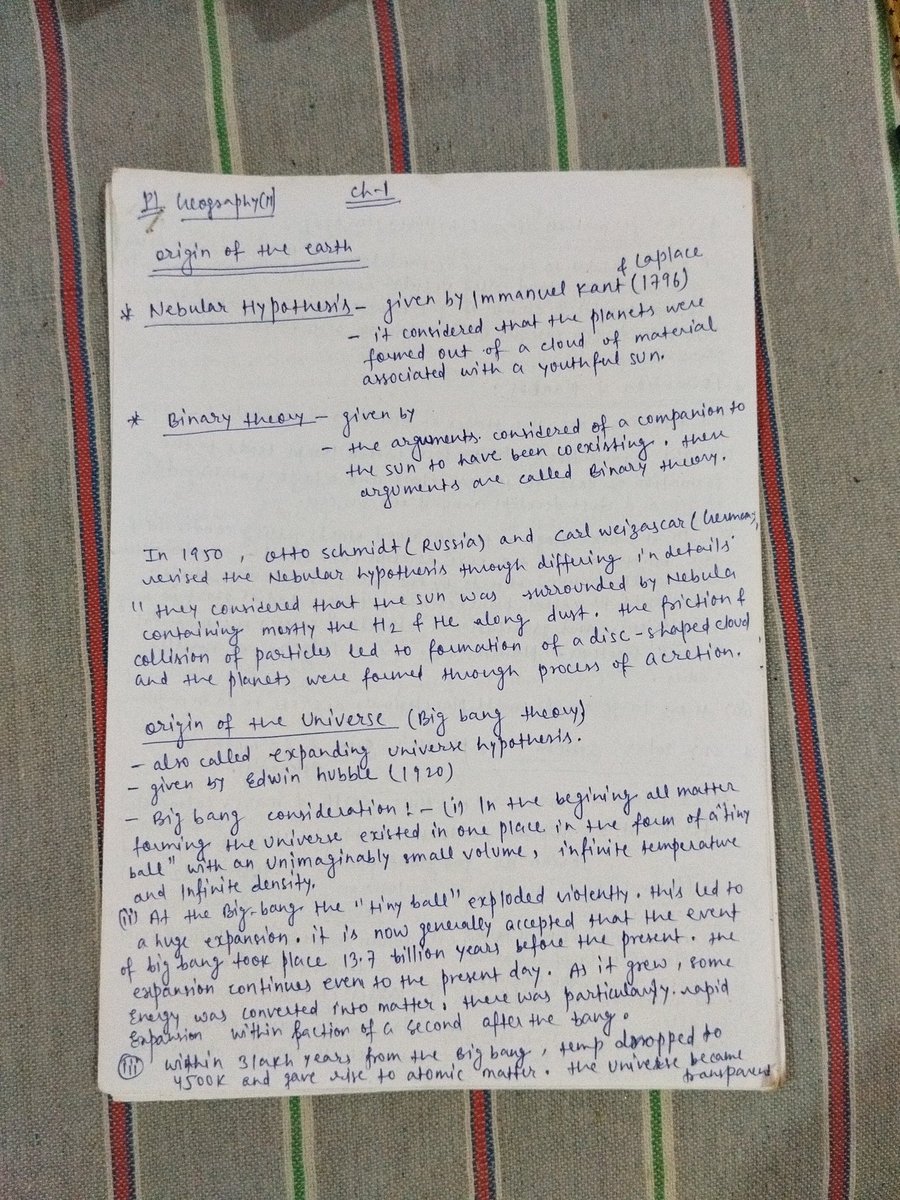 P1 Geography(M) Ch-1
origin of the earth
& Laplace
* Nebular Hypothesis - given by Immanuel Kant (1796)
- it considered that the planets were
formed out of a cloud of material
associated with a youthful sun.
* Binary theory - given by
- the arguments considered of a companion to
the sun to have been coexisting. these
arguments are called Binary theory.
In 1950, otto schmidt (Russia) and Carl weizascar (Germany)
revised the Nebular hypothesis through differing in details
" they considered that the sun was surrounded by Nebula
containing mostly the H2 & He along dust. the friction &
collision of particles led to formation of a disc-shaped cloud
and the planets were formed through process of acretion.
origin of the Universe (Big bang theory)
- also called expanding universe hypothesis.
- given by Edwin hubble (1920)
- Big bang consideration! - (i) In the begining all matter
forming the universe existed in one place in the form of a "tiny
ball" with an unimaginably small volume, infinite temperature
and Infinite density.
(ii) At the Big-bang the "tiny ball" exploded violently. this led to
a huge expansion. it is now generally accepted that the event
of big bang took place 13.7 billion years before the present. the
expansion continues even to the present day. As it grew, some
Energy was converted into matter. there was particularly rapid
Expansion within faction of a second after the bang.
(iii) within 3 lakh years from the Big bang, temp dropped to
4500K and gave rise to atomic matter. the universe became
transparent